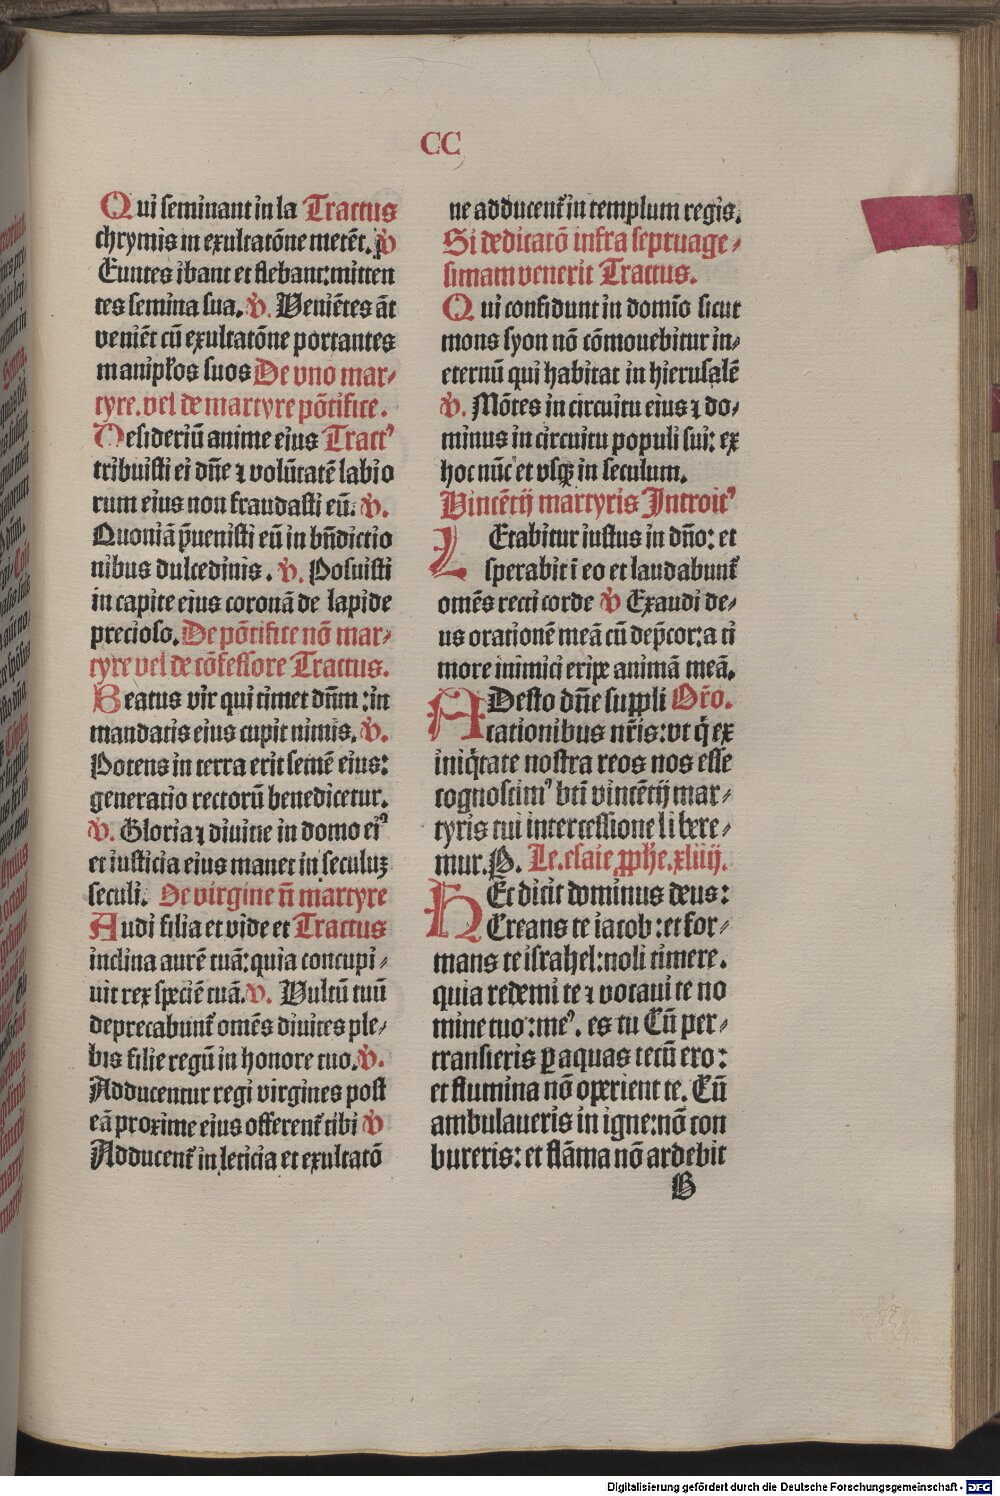 CC
Qui seminant in la Tractus
chrymis in exultatōne metēt. ṽ
Euntes ibant et flebant: mitten
tes semina sua. ṽ. Veniētes āt
veniēt cū exultatōne portantes
manipłos suos De vno mar⸗
tyre. vel de martyre pōtifice.
Desideriū anime eius Tract⁹
tribuisti ei dn̄e ⁊ volūtatē labio
rum eius non fraudasti eū: ṽ.
Quoniā p̄uenisti eū in bn̄dictio
nibus dulcedinis. ṽ. Posuisti
in capite eius coronā de lapide
precioso. De pōtifice nō mar⸗
tyre vel de cōfessore Tractus.
Beatus vir qui timet dn̄m: in
mandatis eius cupit nimis. ṽ.
Potens in terra erit semē eius:
generatio rectorū benedicetur.
ṽ. Gloria ⁊ diuitie in domo ei⁹
et iusticia eius manet in seculuꝫ
seculi. De virgine n̄ martyre
Audi filia et vide et Tractus
inclina aurē tuā: quia concupi⸗
uit rex speciē tuā. ṽ. Vultū tuū
deprecabunt̄ omēs diuites ple⸗
bis filie regū in honore tuo. ṽ.
Adducentur regi virgines post
eā proxime eius offerent̄ tibi ṽ
Adducent̄ in leticia et exultatō
ne adducent̄ in templum regis.
Si dedicatō infra septuage⸗
simam venerit Tractus.
Qui confidunt in domīo sicut
mons syon nō cōmouebitur in⸗
eternū qui habitat in hierusalē
ṽ. Mōtes in circuitu eius ⁊ do⸗
minus in circuitu populi sui: ex
hoc nūc et vsqꝫ in seculum.
Vincētij martyris Introit⁹
LEtabitur iustus in dn̄o: et
sperabit ī eo et laudabunt̄
omēs recti corde ṽ Exaudi de⸗
us orationē meā cū dep̄cor: a ti
more inimici eripe animā meā.
ADesto dn̄e suppli Or̄o.
cationibus nr̄is: vt q̄ ex
iniq̄tate nostra reos nos esse
cognoscim⁹ btī vincētij mar⸗
tyris tui intercessione libere⸗
mur. P. Le. esaie ꝓphe. xliij.
HEc dicit dominus deus:
Creans te iacob: et for⸗
mans te israhel: noli timere.
quia redemi te ⁊ vocaui te no
mine tuo: me⁹. es tu Cū per⸗
transieris ꝑ aquas tecū ero:
et flumina nō operient te. Cū
ambulaueris in igne: nō con
bureris: et flāma nō ardebit
B
Digitalisierung gefördert durch die Deutsche Forschungsgemeinschaft - DFG